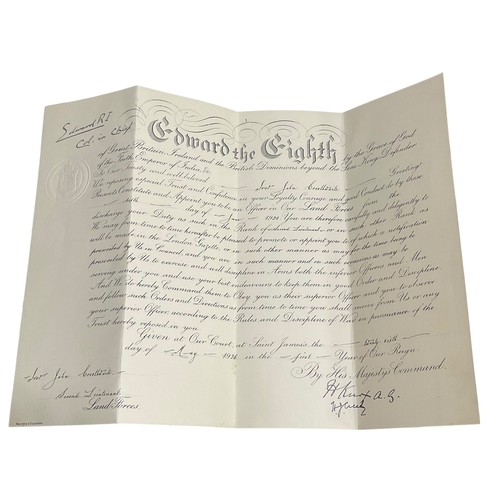 Edward R I
Col. in Chief
Edward the Eighth by the Grace of God
of Great Britain, Ireland and the British Dominions beyond the Seas King, Defender
of the Faith, Emperor of India, &c.
To Our Trusty and well beloved John Greeting!
We reposing especial Trust and Confidence in your Loyalty Courage and good Conduct do by these
Presents Constitute and Appoint you to be an Officer in Our Land Forces from the
day of 1936 You are therefore carefully and diligently to
discharge your Duty as such in the Rank of Second Lieutenant or in such other Rank as
We may from time to time hereafter be pleased to promote or appoint you to of which a notification
will be made in the London Gazette, or in such other manner as may for the time being be
prescribed by Us in Council, and you are in such manner and on such occasions as may be
prescribed by Us to exercise and well discipline in Arms both the inferior Officers and Men
serving under you and use your best endeavours to keep them in good Order and Discipline.
And We do hereby Command them to Obey you as their superior Officer and you to observe
and follow such Orders and Directions as from time to time you shall receive from Us or any
your superior Officer according to the Rules and Discipline of War in pursuance of the
Trust hereby reposed in you.
Given at Our Court, at Saint James's, the
day of May 1936 in the first Year of Our Reign
By His Majesty's Command.
John
Second Lieutenant
Land Forces.
A.G.